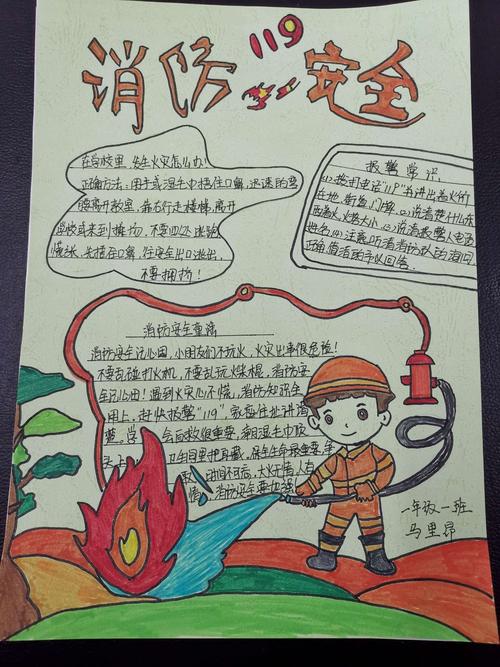 消防 119 安全
在学校里,发生火灾怎么办?
正确方法:用手或湿毛巾捂住口鼻,迅速的弯
腰离开教室,靠右行走楼梯,离开
学校或来到操场,不要四处张望
慌张,先捂住口鼻,往安全出口逃出,
不要拥挤!
报警常识
(1)拨打电话"119"书讲出着火的
在地、街道、门牌。(2)说清楚什么东
西着火,火势大小。(3)说清报警人电话
姓名。(4)注意听清消防队的询问
正确简洁的予以回答。
消防安全童谣
消防安全记心田,小朋友们不玩火,火灾出事很危险!
不要乱碰打火机,不要乱玩火柴棍,消防安
全记心田!遇到火灾心不慌,消防知识全
用上,赶快报警"119",家庭住址讲清
楚。学会自救很重要,
卫生间里把身藏,保生命最重要,
时间不可,大火无情人有
情,消防安全要
一年级一班
马里昂